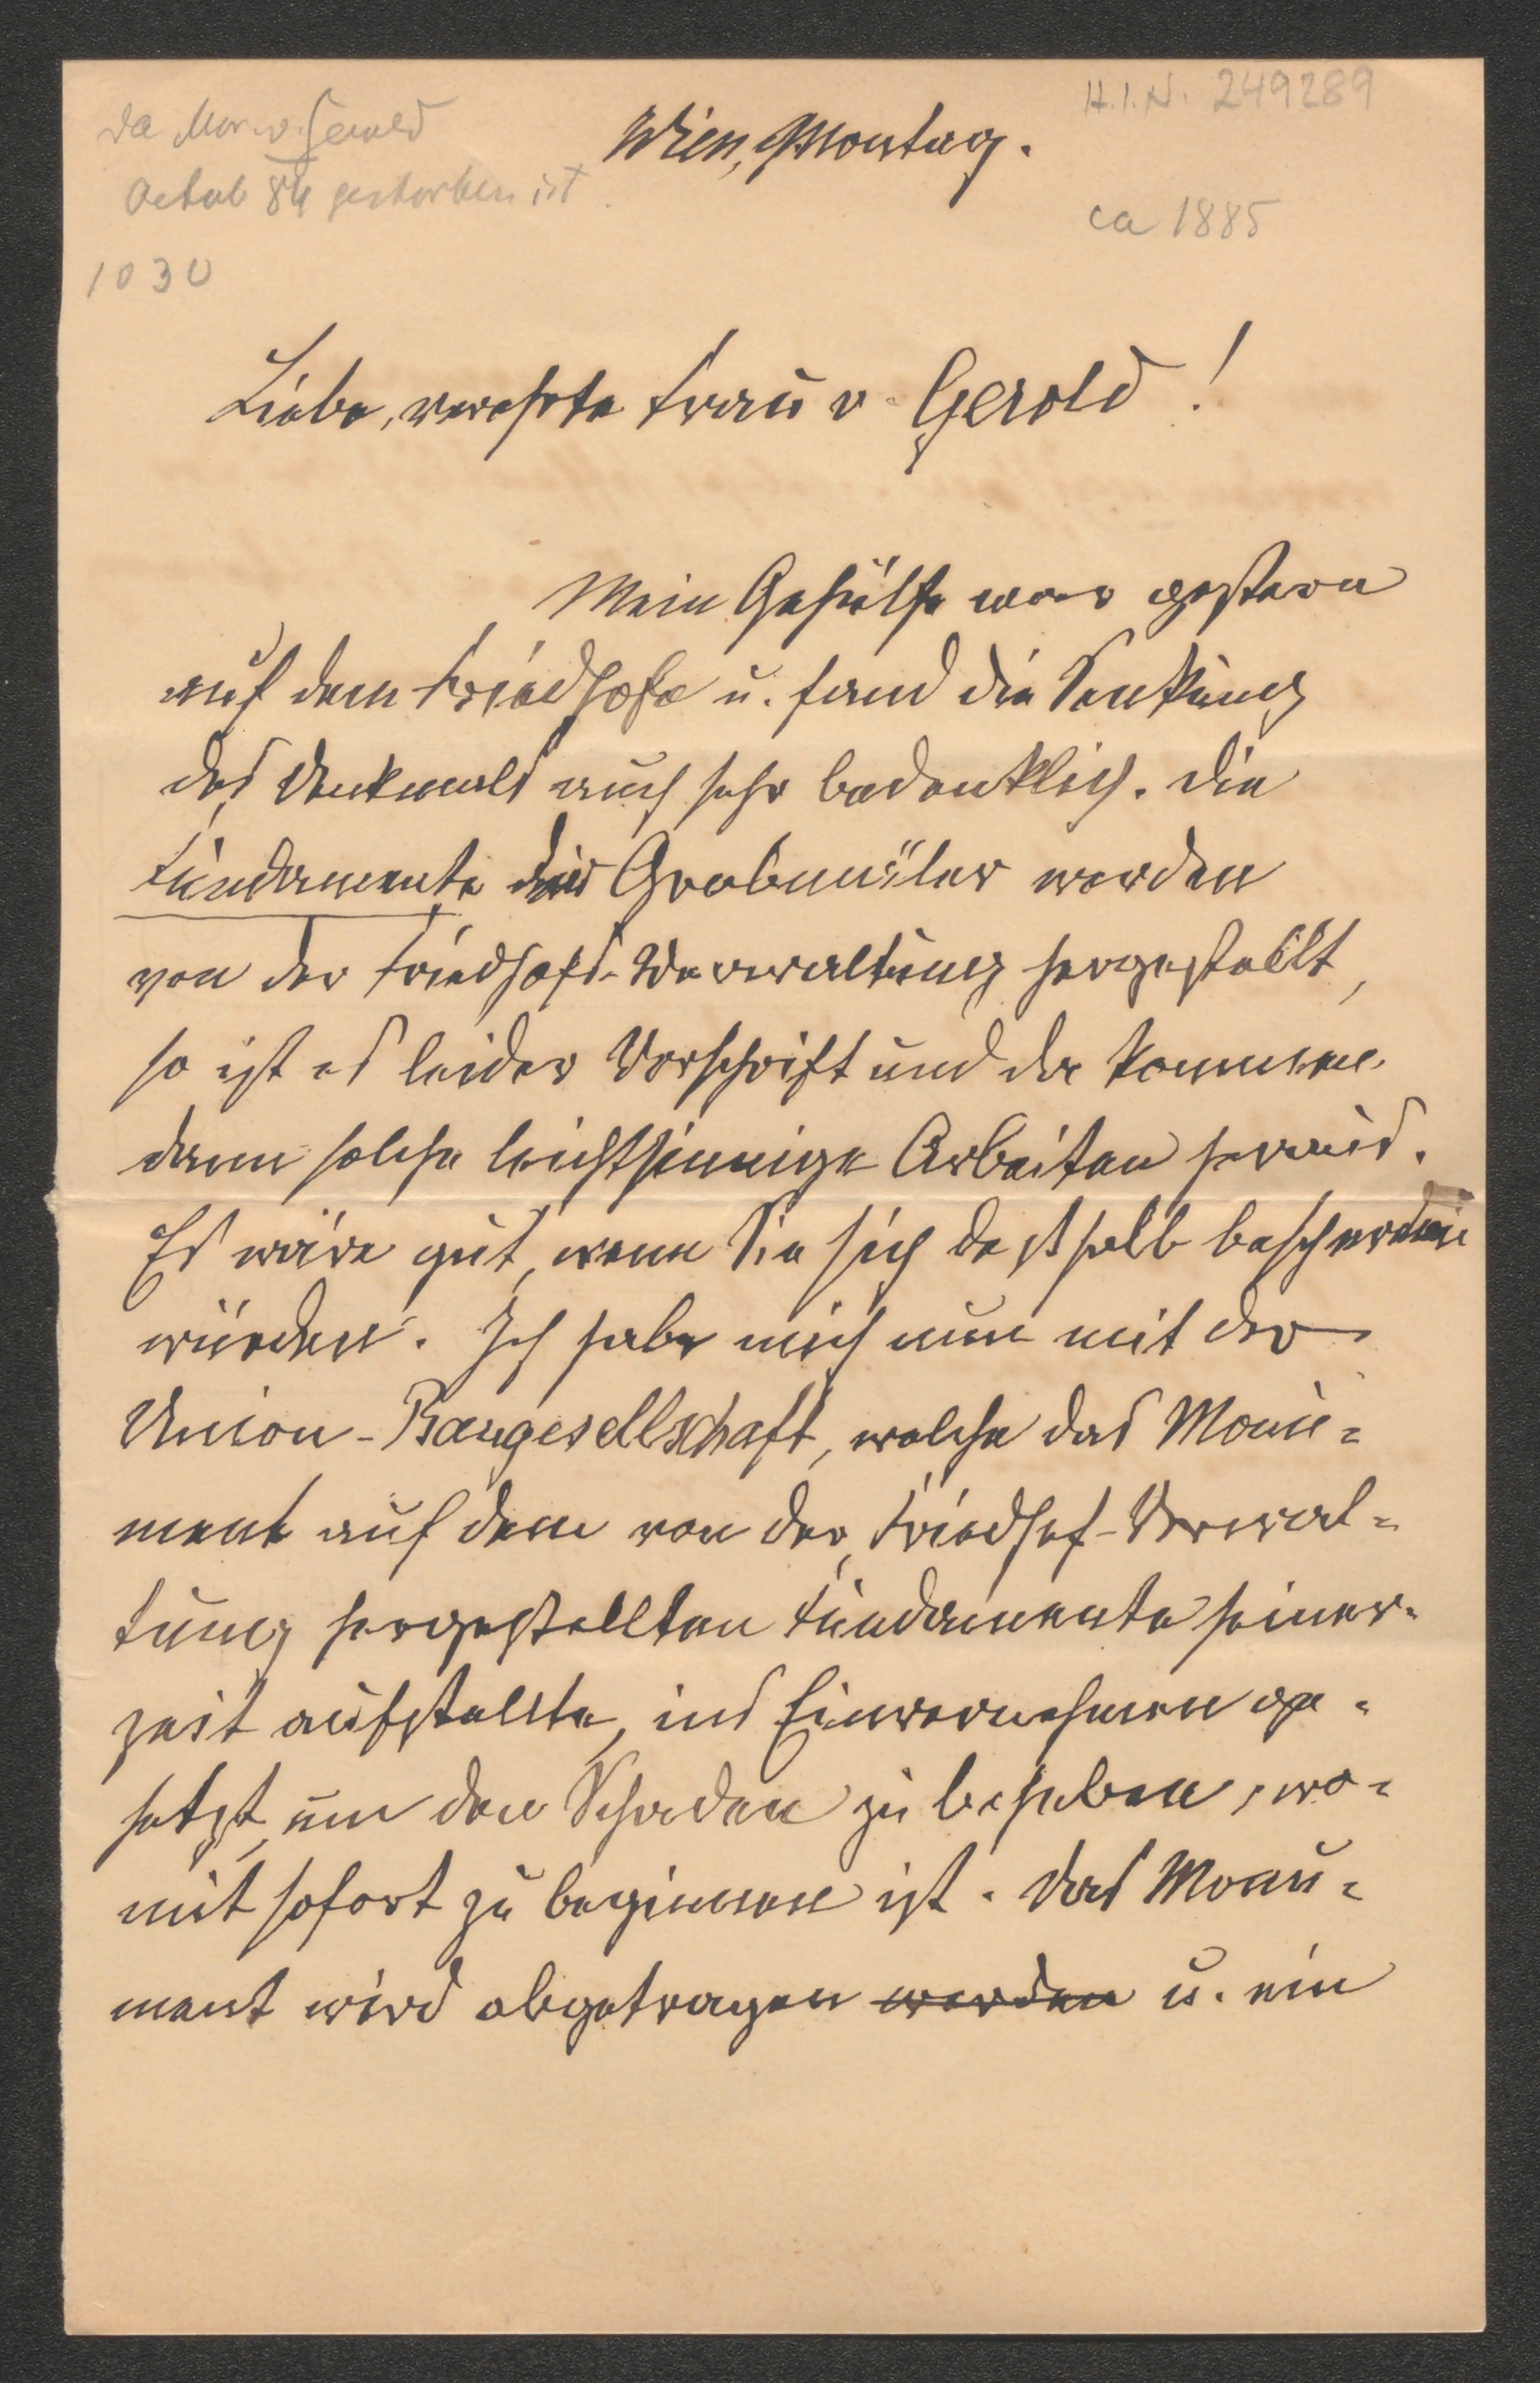 H.I.N. 249289
da Mor. v. Gerold
Octob 84 gestorben ist.
ca 1885
1030
Wien, Montag.
Liebe, verehrte Frau v. Gerold!
Mein Gehülfe war gestern
auf dem Friedhofe u. fand die Senkung
des Denkmals auch sehr bedenklich. Die
Fundamente der Grabmäler werden
von der Friedhofs-Verwaltung hergestellt,
so ist es leider Vorschrift und da kommen
dann solche leichtsinnige Arbeiten heraus.
Es wäre gut, wenn Sie sich deßhalb beschweren
würden. Ich habe mich nun mit der
Union-Baugesellschaft, welche das Monu=
ment auf dem von der Friedhof-Verwal=
tung hergestellten Fundamente seiner=
zeit aufstellte, ins Einvernehmen ge=
setzt, um den Schaden zu beheben, wo=
mit sofort zu beginnen ist. Das Monu=
ment wird abgetragen werden u. ein